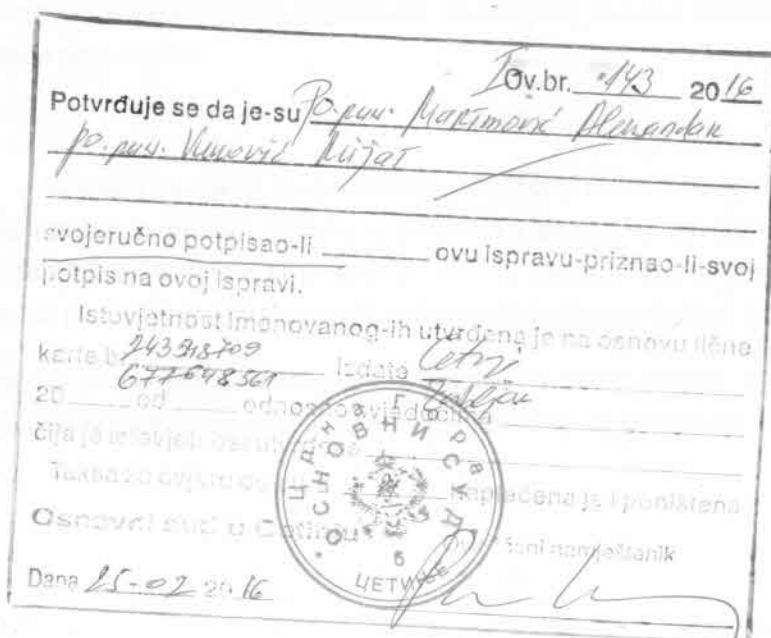 I Ov.br. 143 2016
Potvrđuje se da je-su po.pun. Maximović Alexandar
po.pun. Vuković Mijat
svojeručno potpisao-li ovu ispravu-priznao-li-svoj
potpis na ovoj ispravi.
Istovjetnost imenovanog-ih utvrđena je na osnovu lične
karte br 243598709 izdate Cetinj
677648561 Žabljak
20 od odnosno svjedočina
čija je istovjetnost utvrđena
Taksa za ovjeru naplaćena je i poništena
Osnovni sud u Cetinju
Ovlašćeni namještenik
Dana 25-02 2016
Црна Гора
ОСНОВНИ СУД
6
ЦЕТИЊЕ